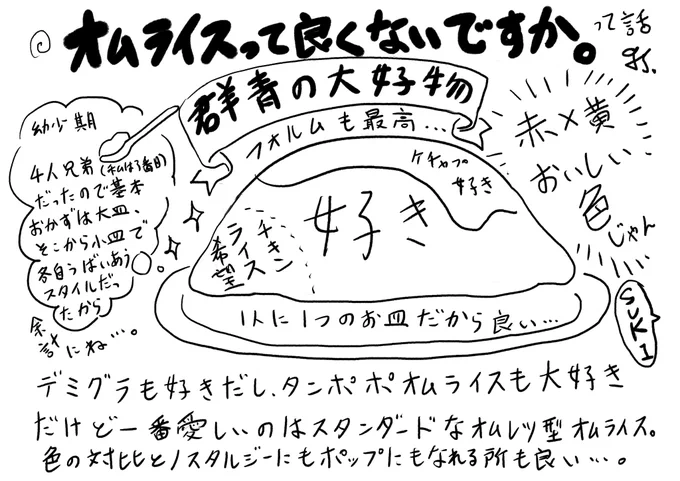 オムライスって良くないですか。
って話
gj.
群青の大好物
フォルムも最高…
ケチャップ
好き
好き
チキン
ライス
希望
1人に1つのお皿だから良い…
幼少期
4人兄弟(私は3番目)
だったので基本
おかずは大皿、
そこから小皿で
各自うばいあう
スタイルだっ
たから
余
計にね…。
赤×黄
おいしい
色じゃん
SUKI
デミグラも好きだし、タンポポオムライスも大好き
だけど一番愛しいのはスタンダードなオムレツ型オムライス。
色の対比とノスタルジーにもポップにもなれる所も良い…。